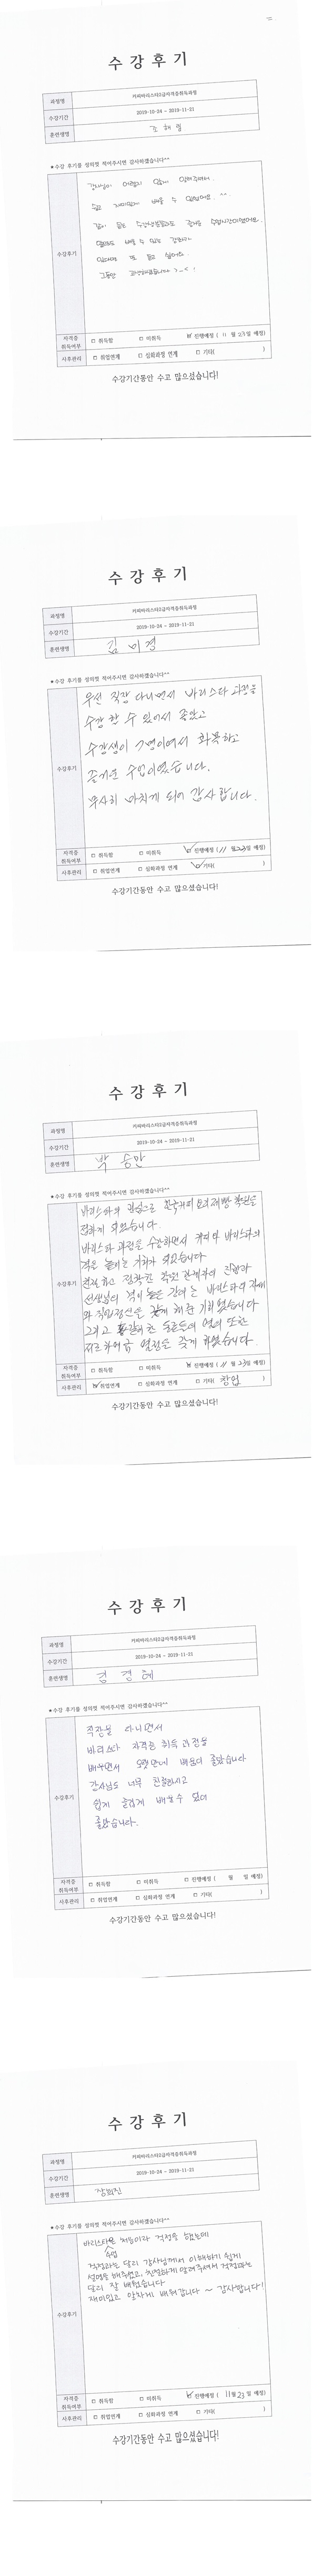 수 강 후 기
과정명 커피바리스타2급자격증취득과정
수강기간 2019-10-24 ~ 2019-11-21
훈련생명
★수강 후기를 성의껏 적어주시면 감사하겠습니다^^
수강후기
강사님이
쉽고 재미있게 배울 수 있었어요 ^^
같이 듣는 수강생분들과도 즐거운 수업시간이었어요.
자격증 취득여부 □ 취득함 □ 미취득 ☑ 진행예정 ( 11 월 23일 예정)
사후관리 □ 취업연계 □ 심화과정 연계 □ 기타( )
수강기간동안 수고 많으셨습니다!
수 강 후 기
과정명 커피바리스타2급자격증취득과정
수강기간 2019-10-24 ~ 2019-11-21
훈련생명 김 미경
★수강 후기를 성의껏 적어주시면 감사하겠습니다^^
수강후기
우선 직장 다니면서 바리스타 과정을
수강 할 수 있어서 좋았고
수강생이 7명이여서 화목하고
즐거운 수업이였습니다.
무사히 마치게 되어 감사합니다.
자격증 취득여부 □ 취득함 □ 미취득 ☑ 진행예정 ( 11 월 23일 예정)
사후관리 □ 취업연계 □ 심화과정 연계 ☑ 기타( )
수강기간동안 수고 많으셨습니다!
수 강 후 기
과정명 커피바리스타2급자격증취득과정
수강기간 2019-10-24 ~ 2019-11-21
훈련생명 박 승만
★수강 후기를 성의껏 적어주시면 감사하겠습니다^^
수강후기
바리스타의 관심으로 한국커피요리제빵 학원을
접하게 되었습니다.
바리스타 과정을 수강하면서 커피와 바리스타의
격을 높이는 기회가 되었습니다
선생님의 격이 높은 강의는 바리스타의 자세
자격증 취득여부 □ 취득함 □ 미취득 ☑ 진행예정 ( 11 월 23일 예정)
사후관리 ☑ 취업연계 □ 심화과정 연계 □ 기타( 창업 )
수강기간동안 수고 많으셨습니다!
수 강 후 기
과정명 커피바리스타2급자격증취득과정
수강기간 2019-10-24 ~ 2019-11-21
훈련생명 김 경 혜
★수강 후기를 성의껏 적어주시면 감사하겠습니다^^
수강후기
직장을 다니면서
바리스타 자격증 취득 과정을
배우면서 오랫만에 배움이 좋았습니다
강사님도 너무 친절하시고
쉽게 즐겁게 배울수 있어
좋았습니다.
자격증 취득여부 □ 취득함 □ 미취득 □ 진행예정 ( 월 일 예정)
사후관리 □ 취업연계 □ 심화과정 연계 □ 기타( )
수강기간동안 수고 많으셨습니다!
수 강 후 기
과정명 커피바리스타2급자격증취득과정
수강기간 2019-10-24 ~ 2019-11-21
훈련생명 장희진
★수강 후기를 성의껏 적어주시면 감사하겠습니다^^
수강후기
바리스타 수업은 처음이라 걱정을 했는데
걱정과는 달리 강사님께서 이해하기 쉽게
설명을 해주셨고, 친절하게 알려주셔서 걱정과는
달리 잘 배웠습니다
재미있고 알차게 배워갑니다 ~ 감사합니다!
자격증 취득여부 □ 취득함 □ 미취득 ☑ 진행예정 ( 11월 23 일 예정)
사후관리 □ 취업연계 □ 심화과정 연계 □ 기타( )
수강기간동안 수고 많으셨습니다!